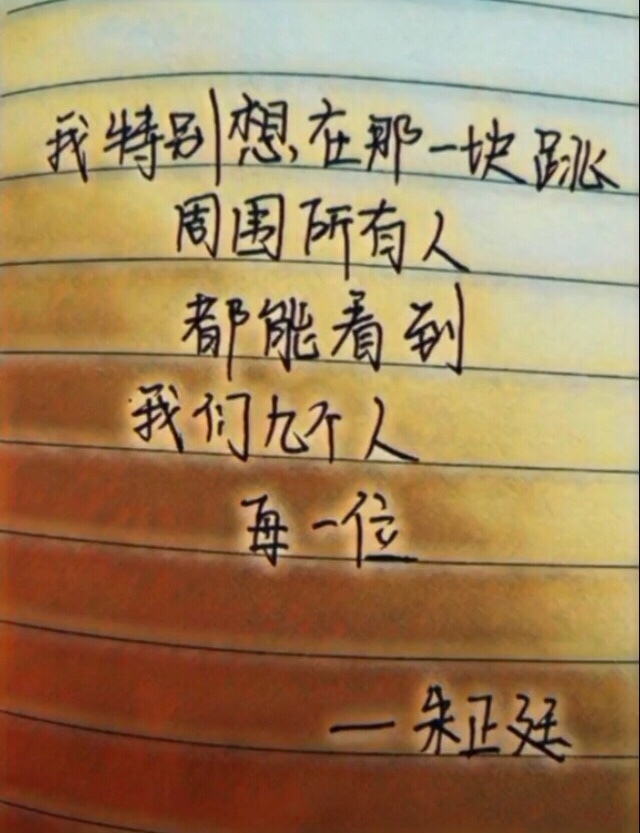 我特别想,在那一块跳
周围所有人
都能看到
我们九个人
每一位
—朱正廷